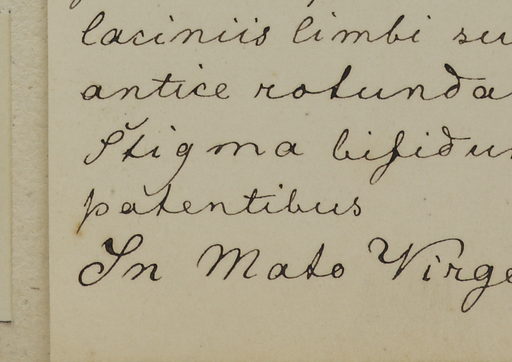 laciniis limbi su
antice rotunda
Stigma bifidu
patentibus
In Mato Virge